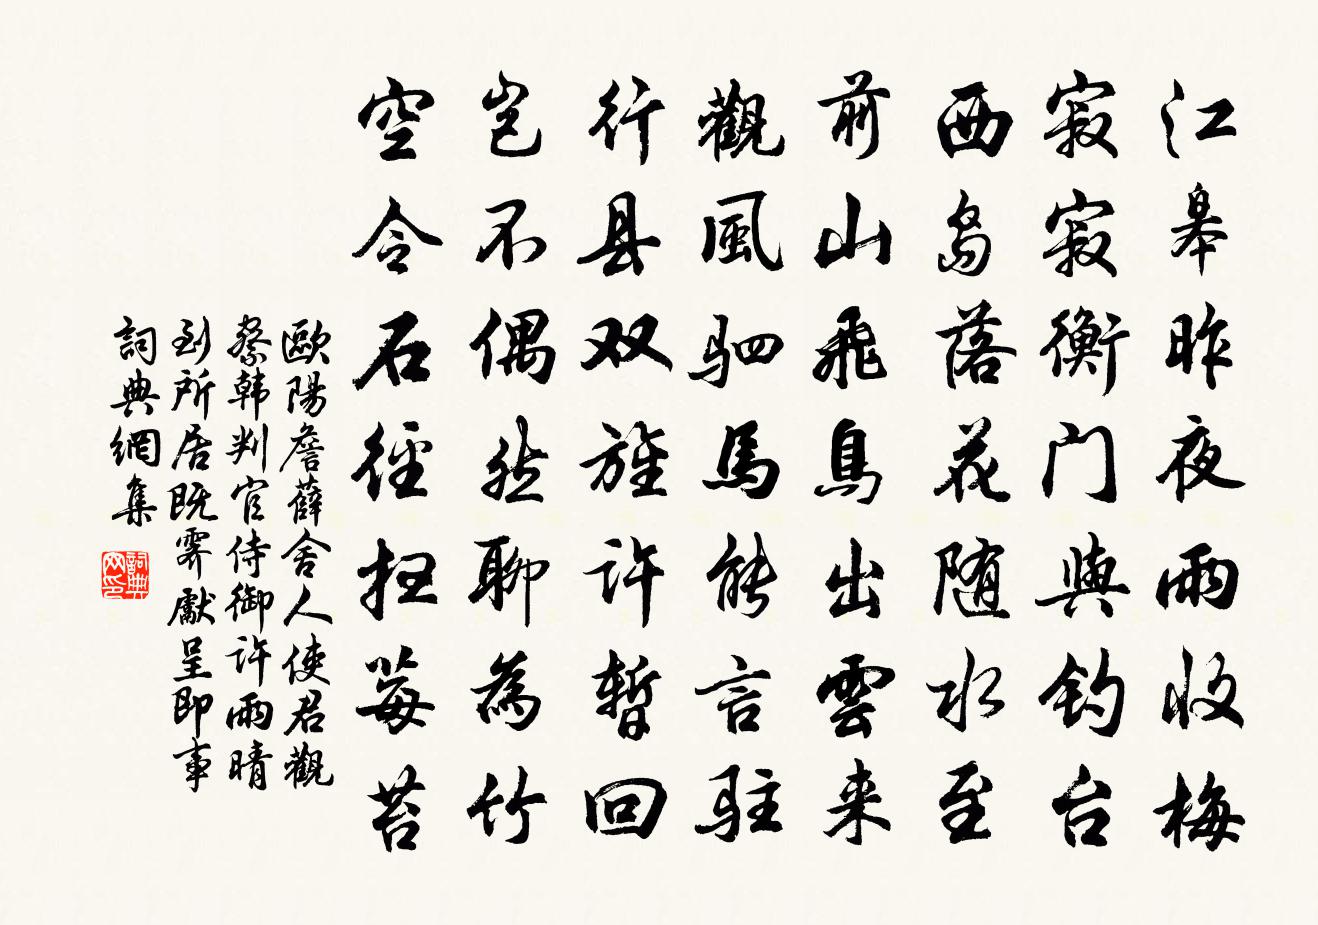 江皋昨夜雨收梅
寂寂衡门與钓台
西岛落花随水至
前山飛鳥出雲来
觀風驷馬能言駐
行县双旌许暫回
岂不偶然聊為竹
空令石徑扫莓苔
歐陽詹薛舍人使君觀
察韩判官侍御许雨晴
到所居既霽獻呈即事
詞典網集
詞典网印